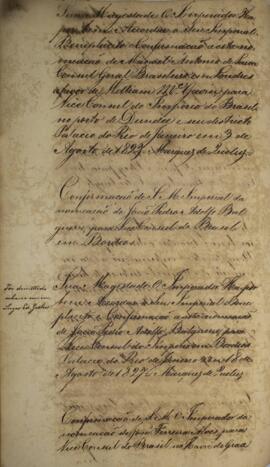 Sua Magestade O Imperador Ha
por bem Accordar o Seu Imperial
Beneplacito e Confirmação a esta no
meação de Manoel Antonio de
Consul Geral Brasileiro em Londres
a favor de William para
Vice Consul do Imperio do Brasil
no porto de Dundee e seu districto
Palacio do Rio de Janeiro em 3 de
Agosto de 1827. Marquez de Queluz.
Confirmação de S. M. Imperial da
nomeação de João Pedro Adolfo
para Vice Consul do Brasil
em Bordeos
Sua Magestade O Imperador Ha por
bem Accordar o Seu Imperial Bene
placito e Confirmação a esta nomeação
de João Pedro Adolfo para
Vice Consul do Imperio em Bordeos
Palacio do Rio de Janeiro em 8 de
Agosto de 1827. Marquez de Queluz
Foi demittido
Confirmação de S. M. O Imperador da
nomeação de José Ferreira Alves para
Vice Consul do Brasil no Havre de Grace